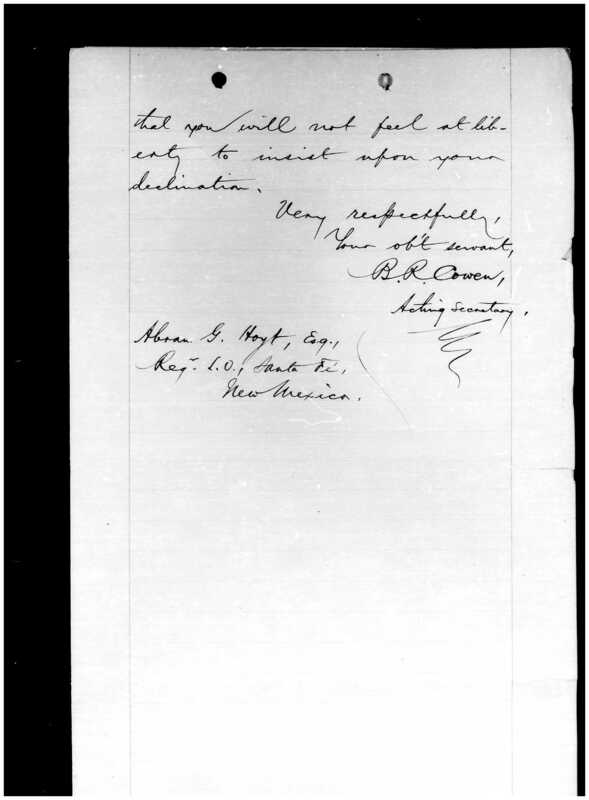 that you will not feel at lib-
erty to insist upon your
declination.
Very respectfully,
Your ob't servant,
B. R. Cowen,
Acting Secretary.
Abram G. Hoyt, Esq.,
Reg. L.O., Santa Fé,
New Mexico.